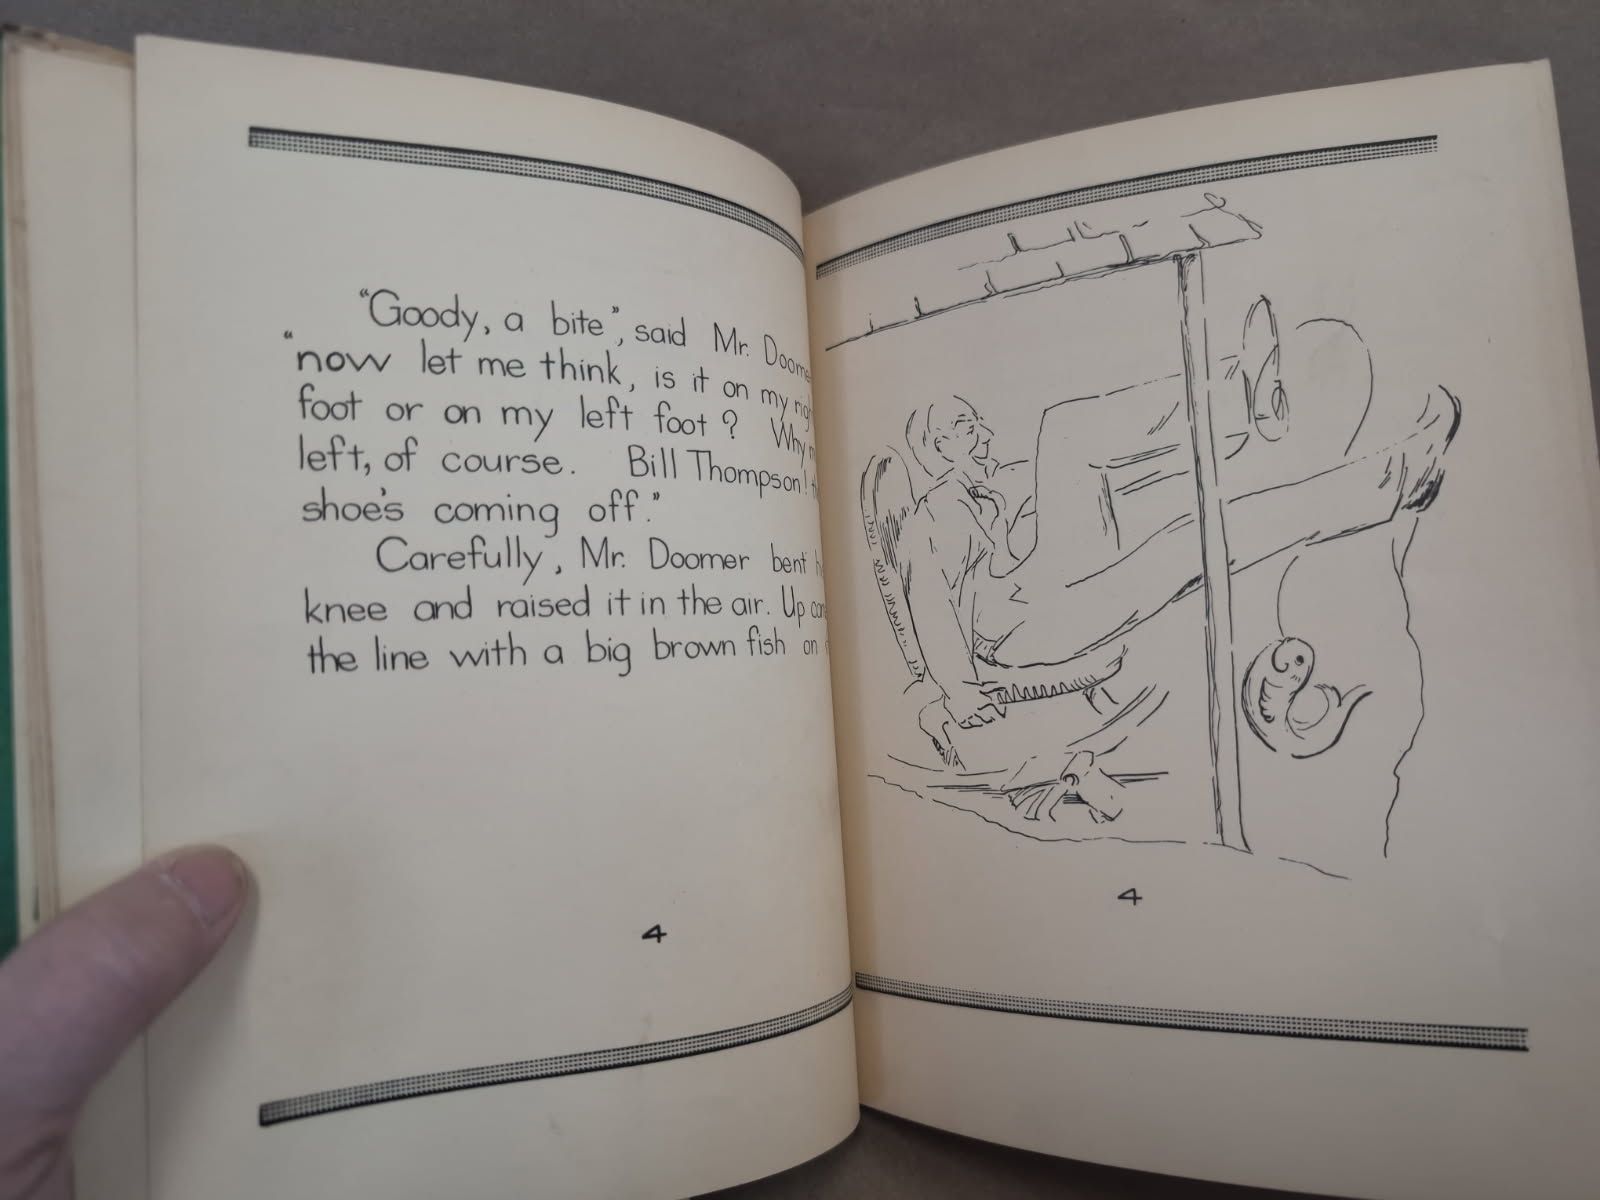 "Goody, a bite", said Mr. Doomer
"now let me think, is it on my
foot or on my left foot? Why
left, of course. Bill Thompson!
shoe's coming off."
Carefully, Mr. Doomer bent
knee and raised it in the air. Up
the line with a big brown fish on
4
4